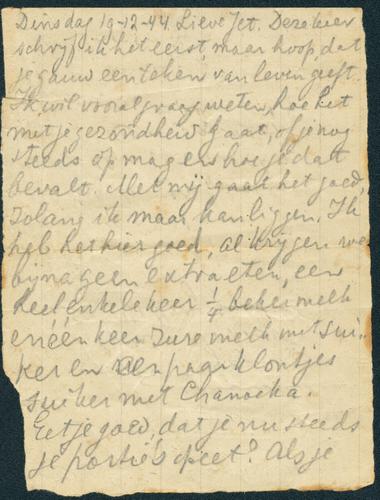 Dinsdag 19-12-44. Lieve Jet. Deze keer
schrijf ik het eerst, maar hoop, dat
je gauw een teken van leven geeft.
Ik wil vooral graag weten, hoe het
met je gezondheid gaat, of je nog
steeds op mag en hoe je dat
bevalt. Met mij gaat het goed,
zolang ik maar kan liggen. Ik
heb het hier goed, al krijgen we
bijna geen extra eten, een
heel enkele keer ¼ beker melk
en één keer zure melk met sui-
ker en een paar klontjes
suiker met Chanoeka.
Eet je goed, dat je nu steeds
je portie's opeet? Als je